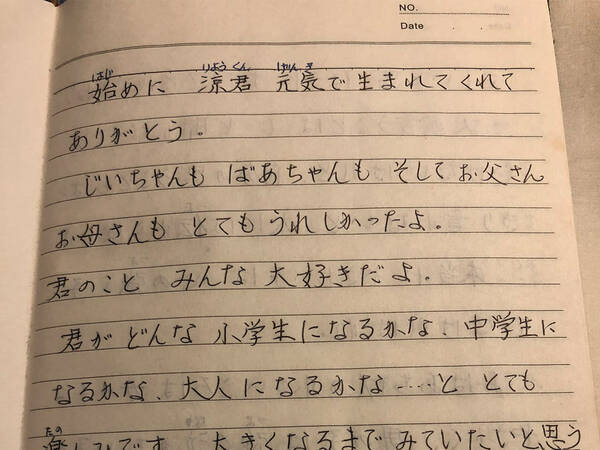 NO.
Date
はじ りょうくん げんき
始めに 涼君 元気で生まれてくれて
ありがとう。
じいちゃんも ばあちゃんも そしてお父さん
お母さんも とても うれしかったよ。
君のこと みんな 大好きだよ。
君が どんな 小学生になるかな、中学生に
なるかな、大人になるかな……と とても
たの
楽しみです 大きくなるまで みていたいと思う